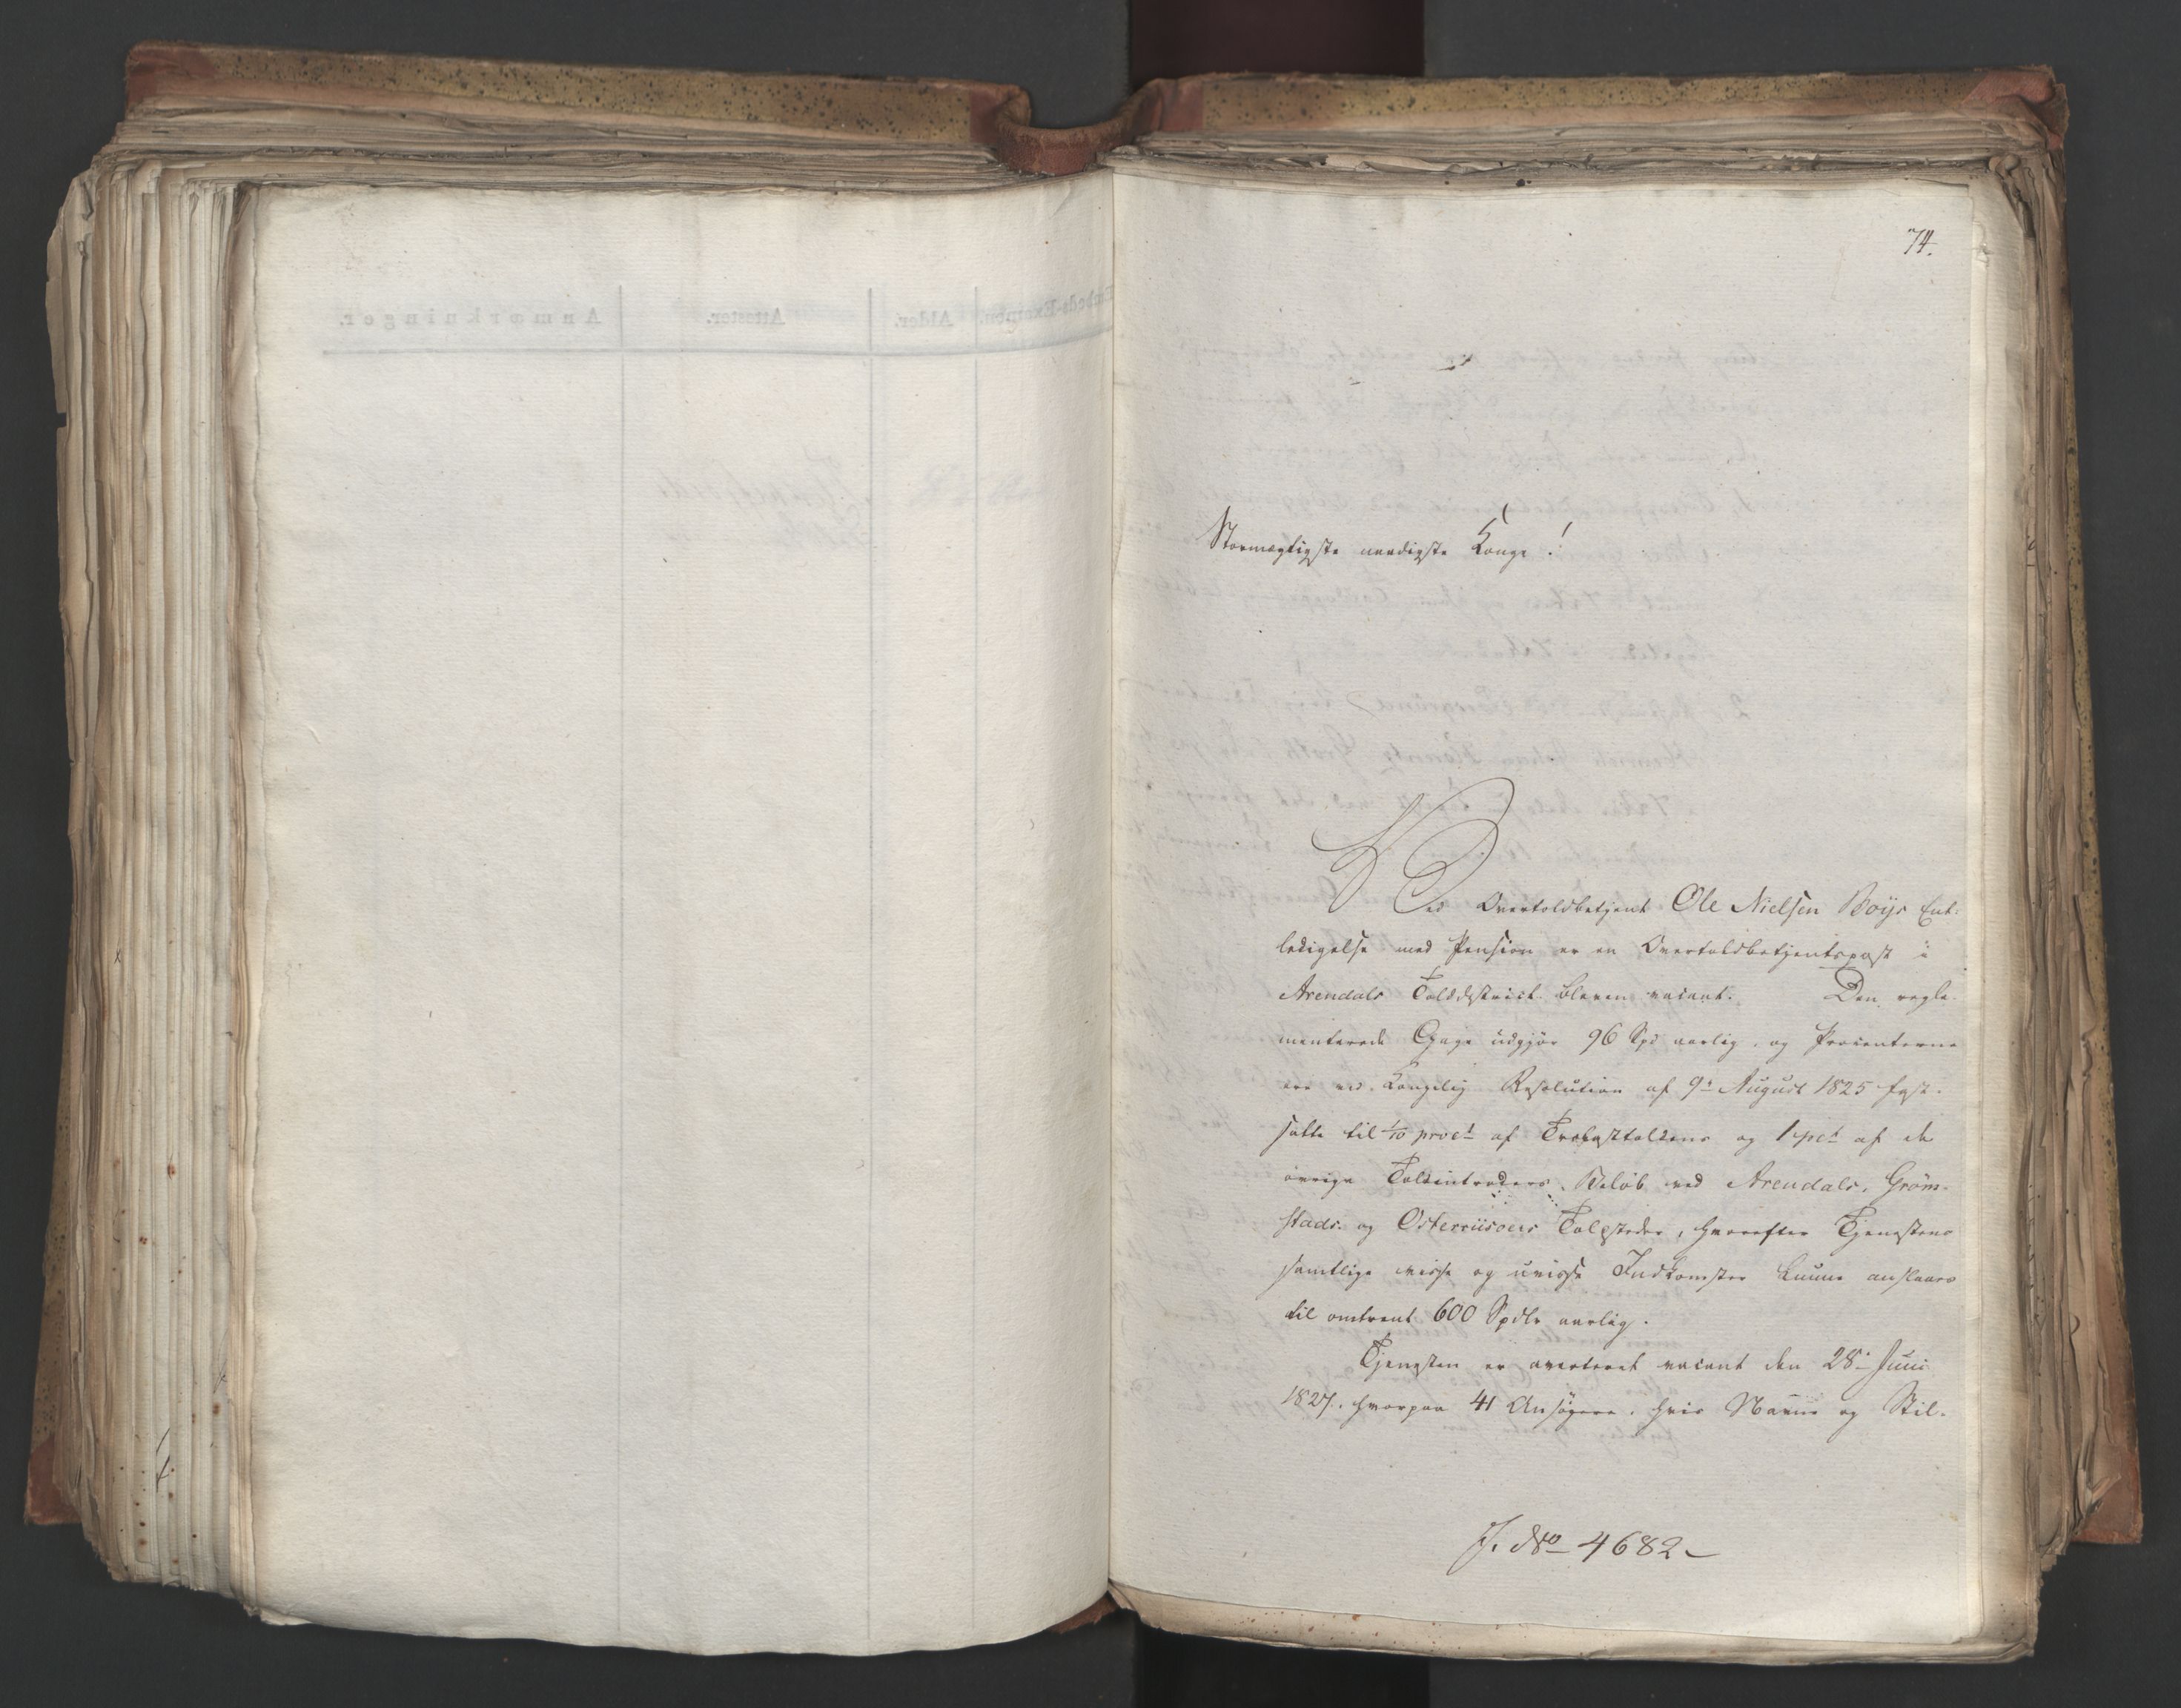 74.
Stormægtigste naadigste Konge!
Ved Overtoldbetjent Ole Nielsen Boijs Ent-
ledigelse med Pension er en Overtoldbetjentspost i
Arendals Tolddistrict bleven vacant. Den regle-
menterede Gage udgjør 96 Spd aarlig, og Procenterne
ere ved Kongelig Resolution af 9de August 1825 fast-
satte til 1/10 proCt af Trælasttoldens og 1 pCt af de
øvrige Toldintraders Beløb ved Arendals, Grøm-
stads og Osterriisoers Toldsteder, hvorefter Tjenestens
samtlige visse og uvisse Indkomster kunne anslaaes
til omtrent 600 Spdlr aarlig.
Tjenesten er averteret vacant den 28de Juni
1827, hvorpaa 41 Ansøgere, hvis Navne og Stil-
J. No 4682